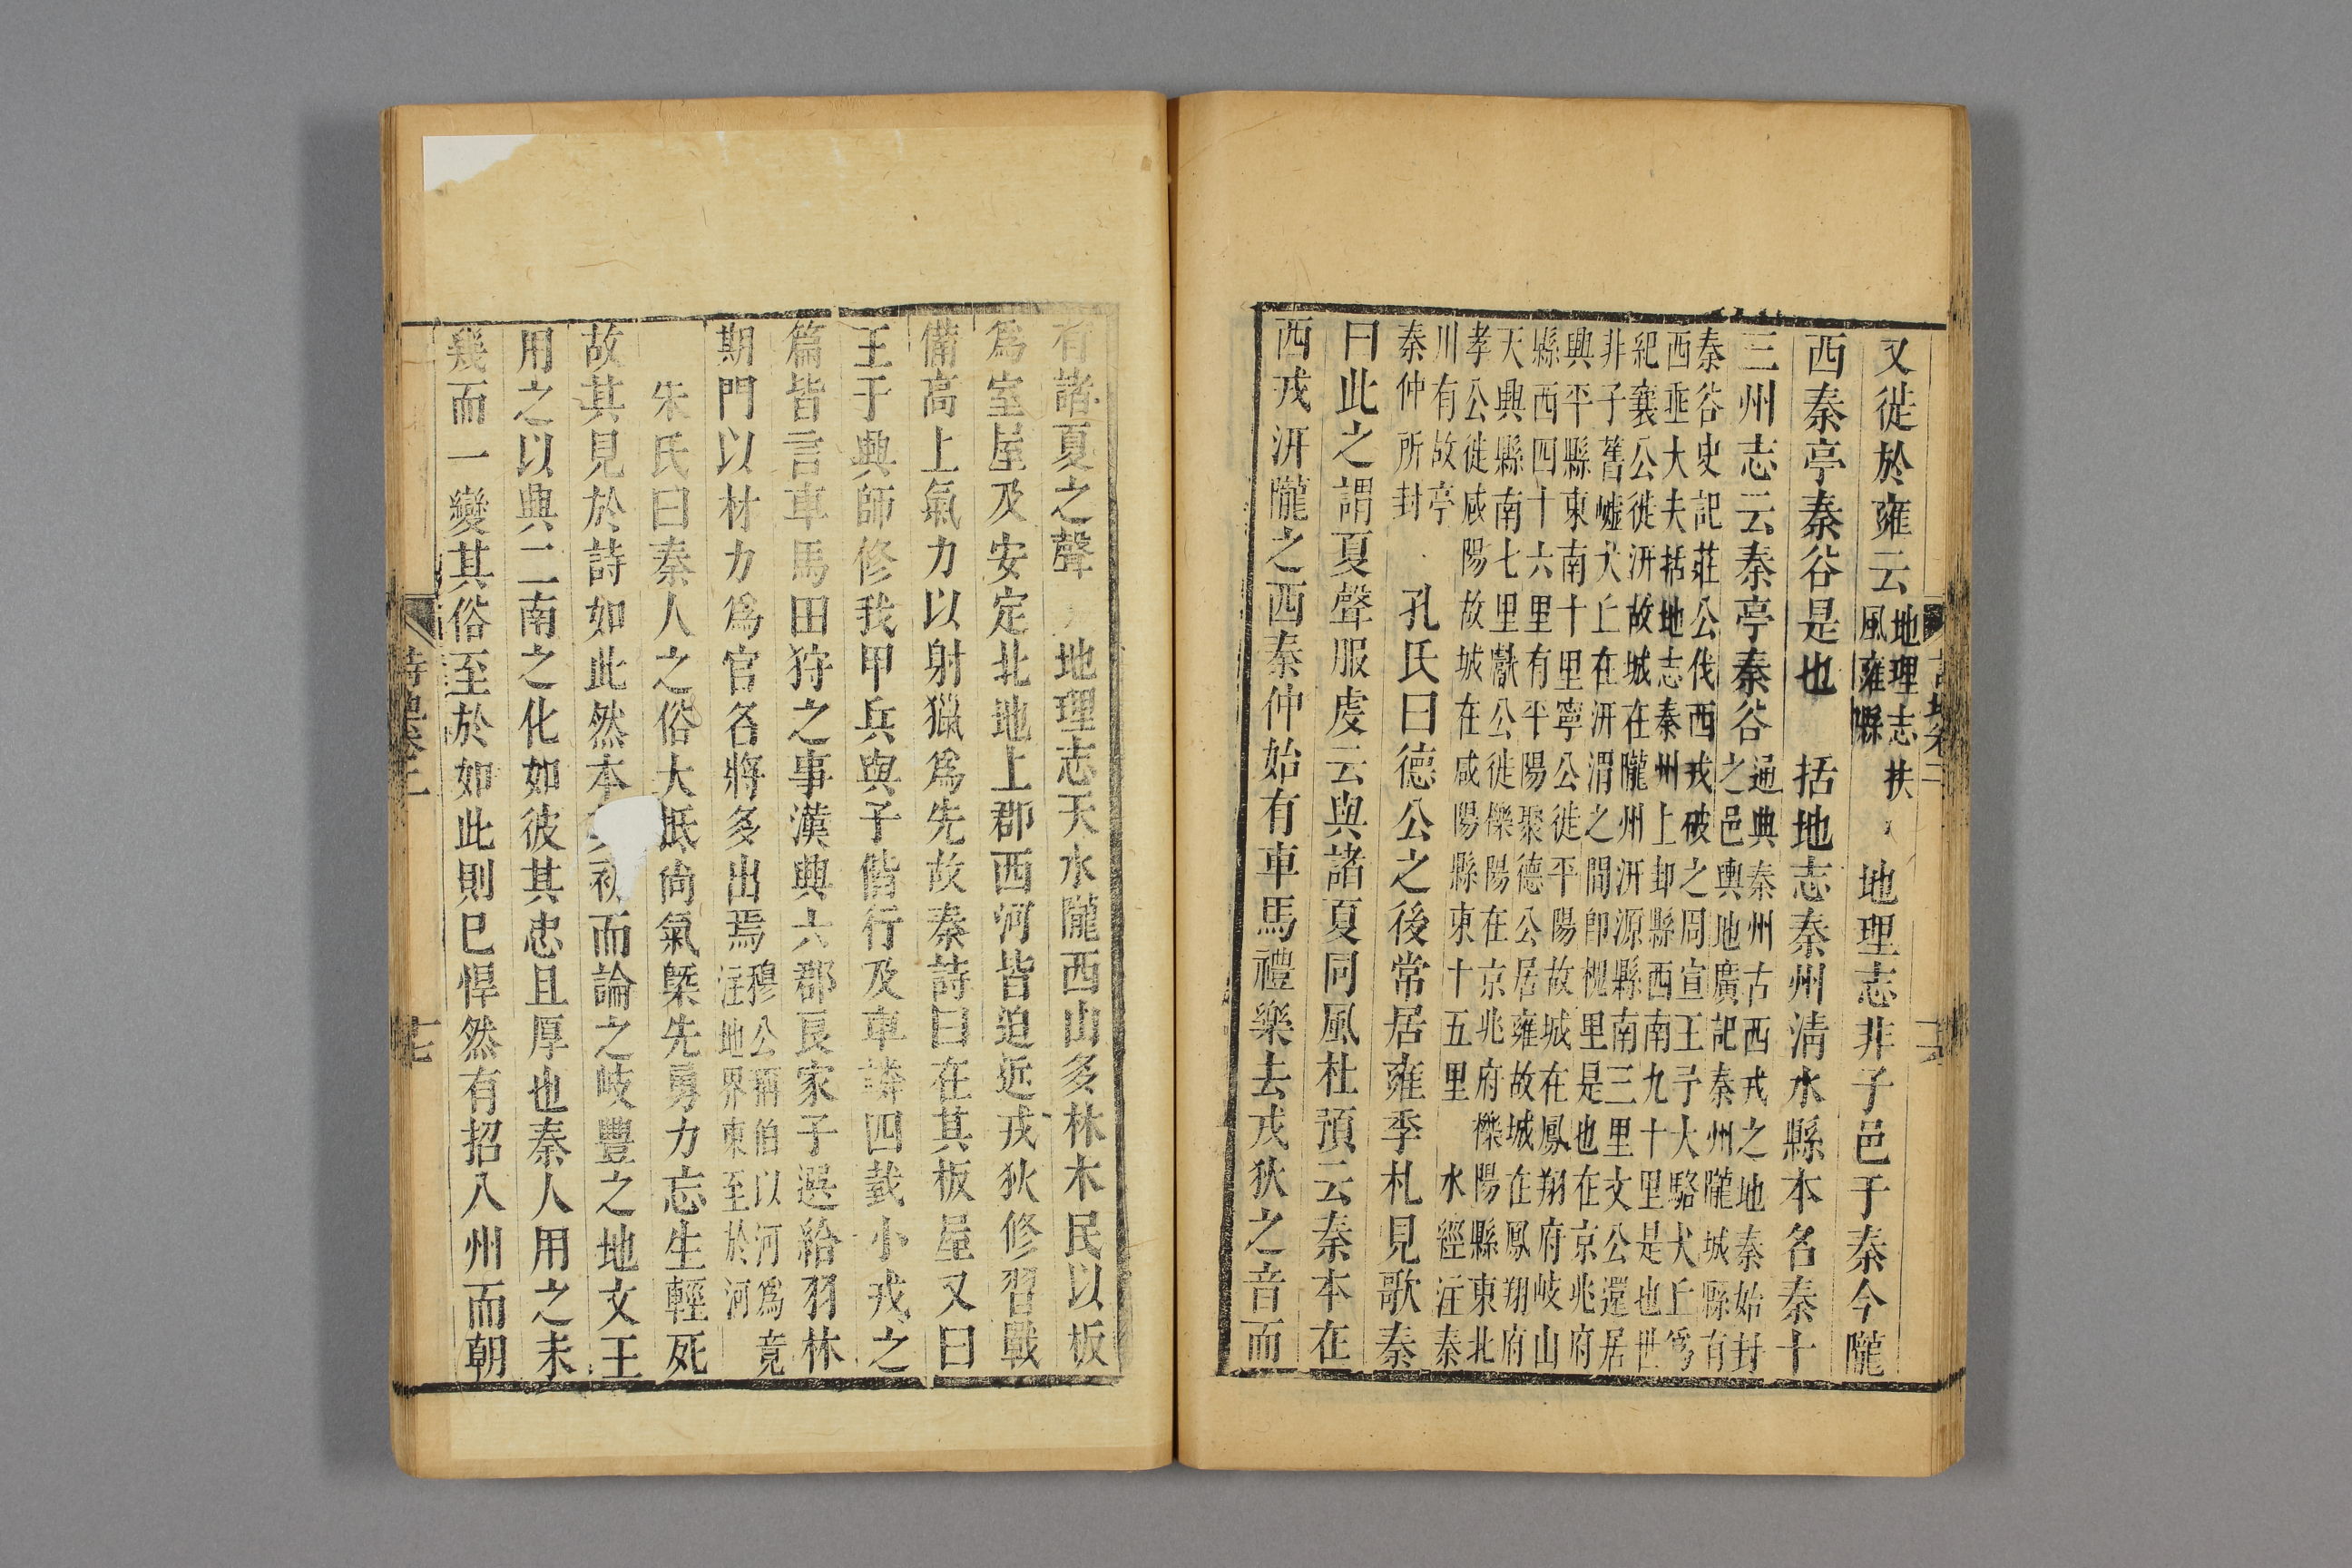 又徙於雍云地理志扶
風雍縣地理志非子邑于秦今隴
西秦亭秦谷是也　括地志秦州清水縣本名秦十
三州志云秦亭秦谷通典秦州古西戎之地秦始封
之邑輿地廣記秦州隴城縣有
秦谷史記莊公伐西戎破之周宣王予大駱犬丘爲
西垂大夫括地志秦州上邽縣西南九十里是也世
紀襄公徙汧故城在隴州汧源縣南三里文公還居
非子舊墟犬丘在汧渭之間卽槐里是也在京兆府
興平縣東南十里寧公徙平陽故城在鳳翔府岐山
縣西四十六里有平陽聚德公居雍故城在鳳翔府
天興縣南七里獻公徙櫟陽在京兆府櫟陽縣東北
孝公徙咸陽故城在咸陽縣東十五里　水經注秦
川有故亭
秦仲所封　孔氏曰德公之後常居雍季札見歌秦
曰此之謂夏聲服虔云與諸夏同風杜預云秦本在
西戎汧隴之西秦仲始有車馬禮樂去戎狄之音而
有諸夏之聲　地理志天水隴西山多林木民以板
爲室屋及安定北地上郡西河皆迫近戎狄修習戰
備高上氣力以射獵爲先故秦詩曰在其板屋又曰
王于興師修我甲兵與子偕行及車轔四臷小戎之
篇皆言車馬田狩之事漢興六郡良家子選給羽林
期門以材力爲官名將多出焉穆公稱伯以河爲竟
注地界東至於河
朱氏曰秦人之俗大抵尚氣槩先勇力忘生輕死
故其見於詩如此然本而論之岐豐之地文王
用之以興二南之化如彼其忠且厚也秦人用之未
幾而一變其俗至於如此則已悍然有招八州而朝